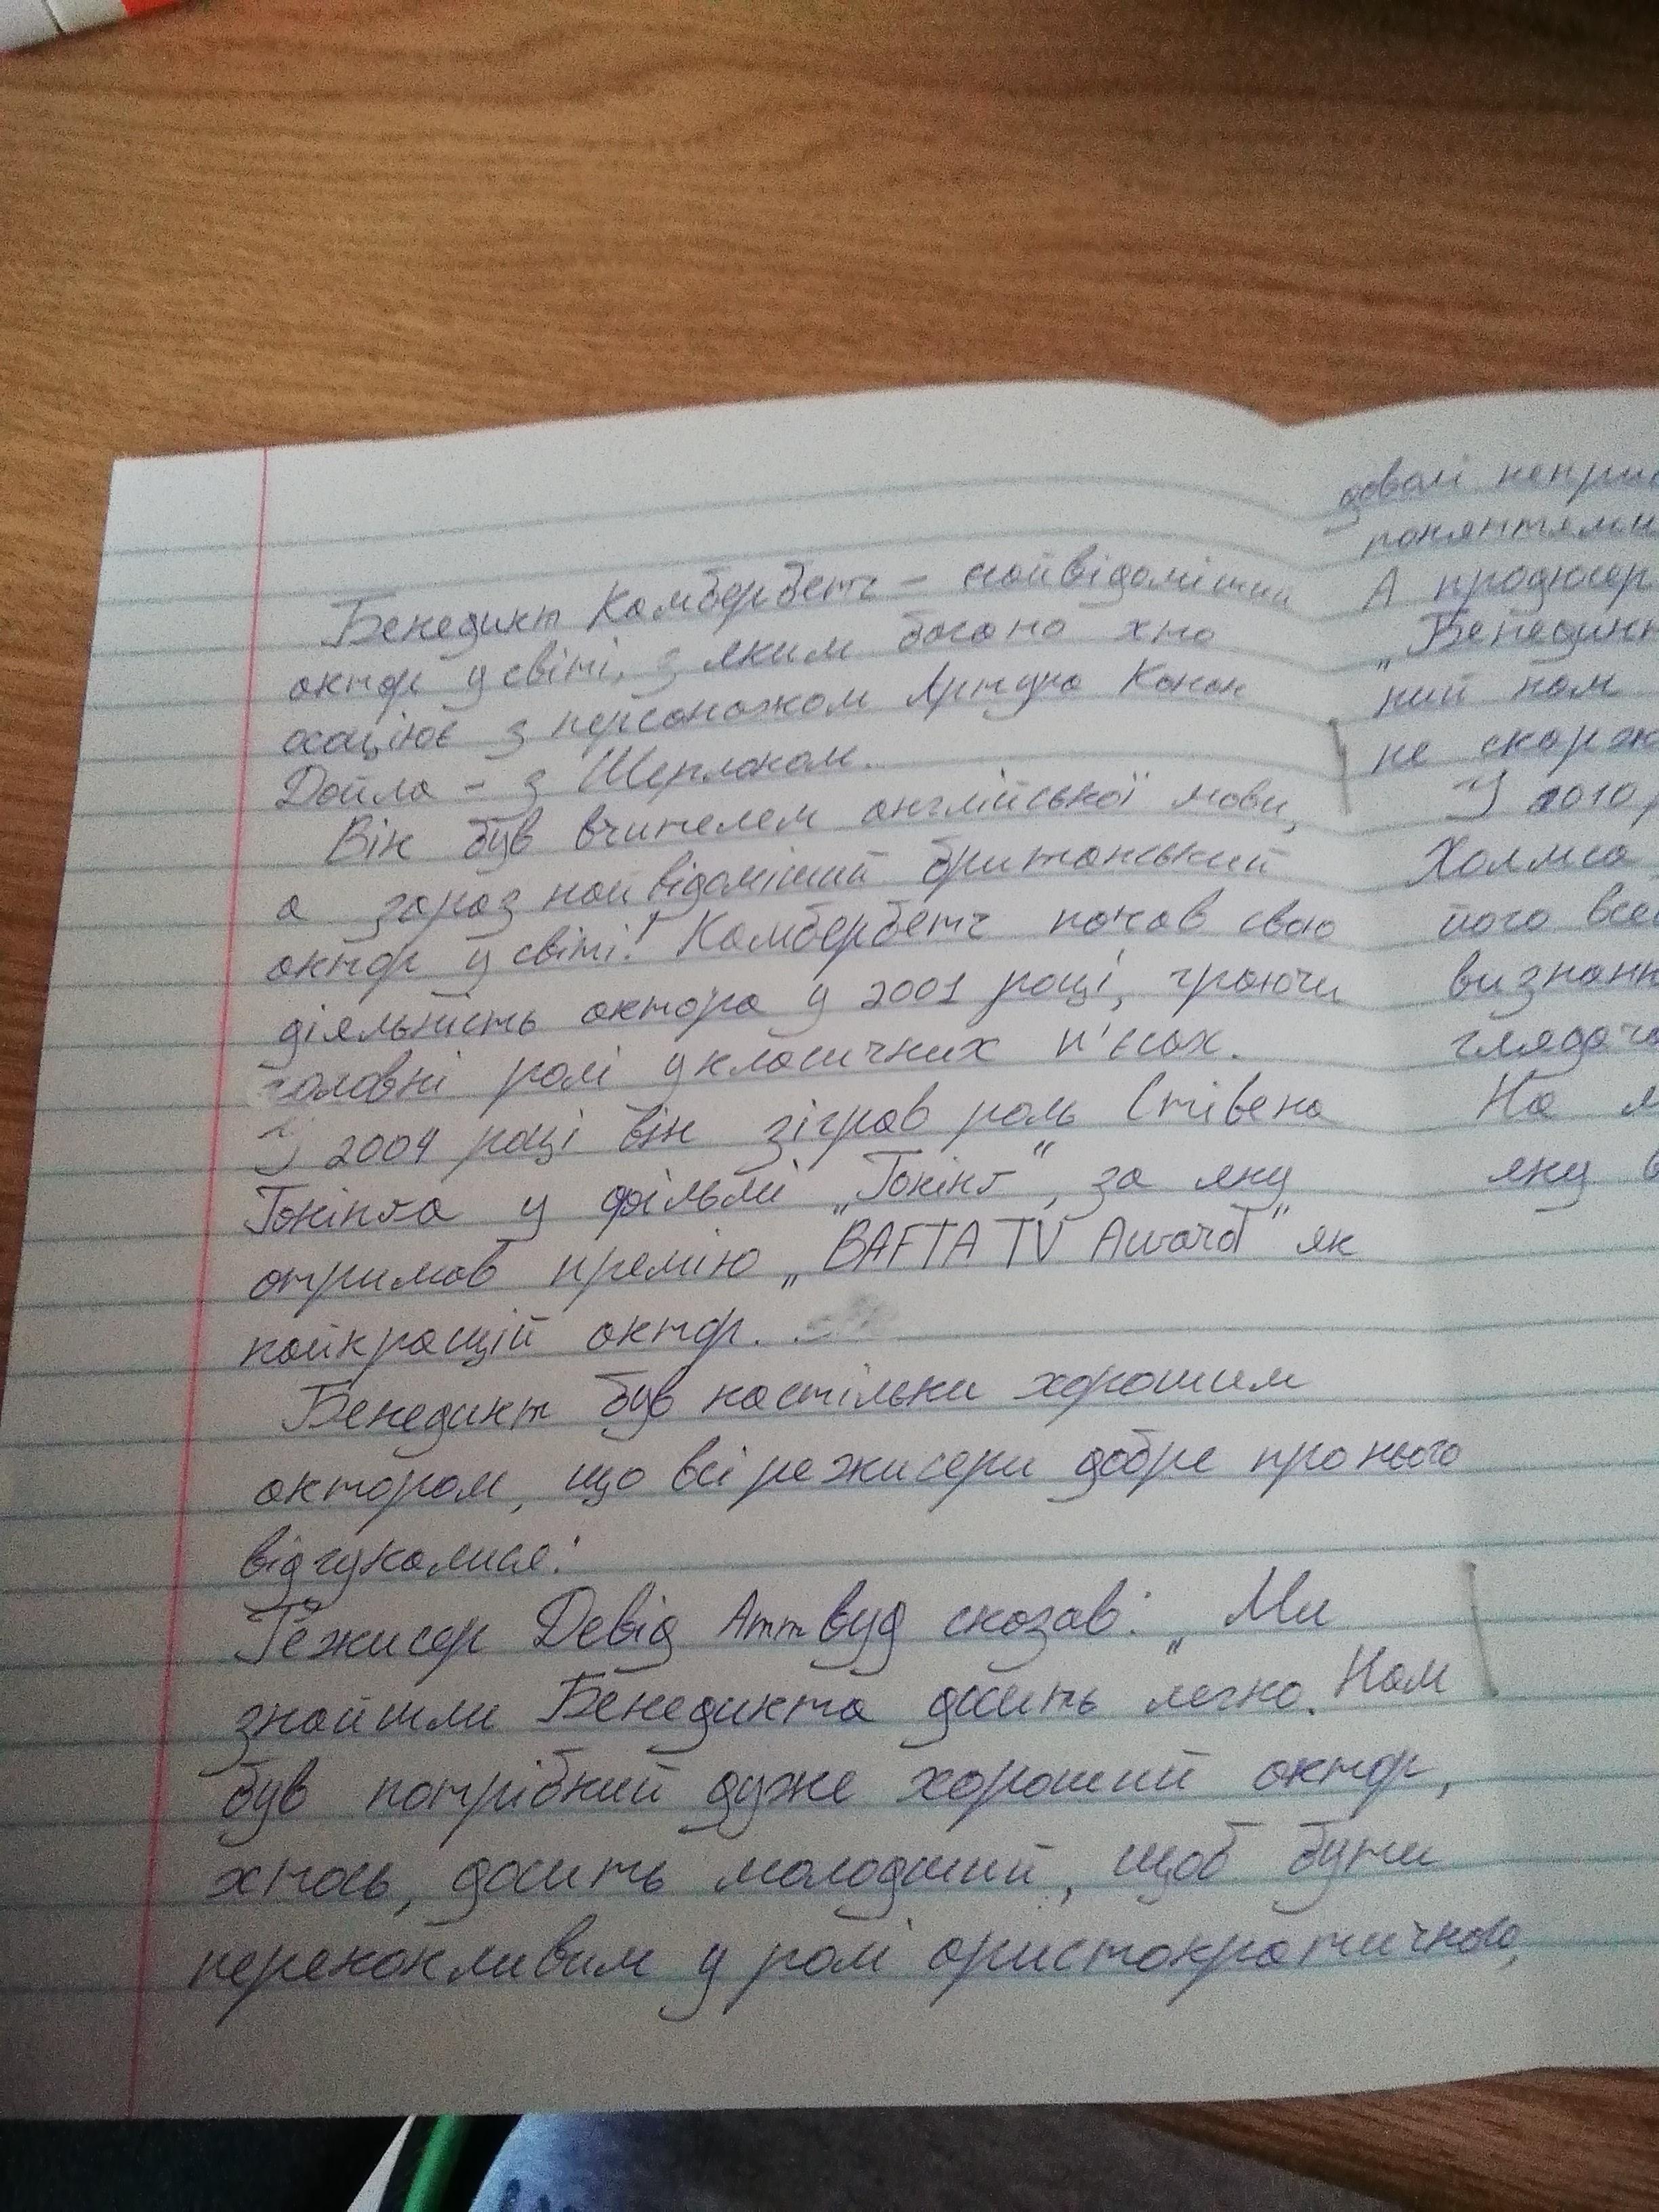 Бенедикт Камбербетч – найвідоміший
актор у світі, з яким багато хто
асоціює з персонажом Артура Конан
Дойла – з Шерлоком.
Він був вчителем англійської мови,
а зараз найвідоміший британський
актор у світі! Камбербетч почав свою
діяльність актора у 2001 році, граючи
головні ролі у класичних п'єсах.
У 2004 році він зіграв роль Стівена
Гокінга у фільмі „Гокінг", за яку
отримав премію „BAFTA TV Award" як
найкращій актор.
Бенедикт був настільки хорошим
актором, що всі режисери добре про нього
відгукалися:
Режисер Девід Аттвуд сказав: „Ми
знайшли Бенедикта досить легко. Нам
був потрібний дуже хороший актор,
хтось, досить молодший, щоб бути
переконливим у ролі аристократичного,
доволі
А продюсер
„Бенедикт
ний нам
не скарж
У 2010 р
Холмса
його все
визнанн
глядача
На м
яку в